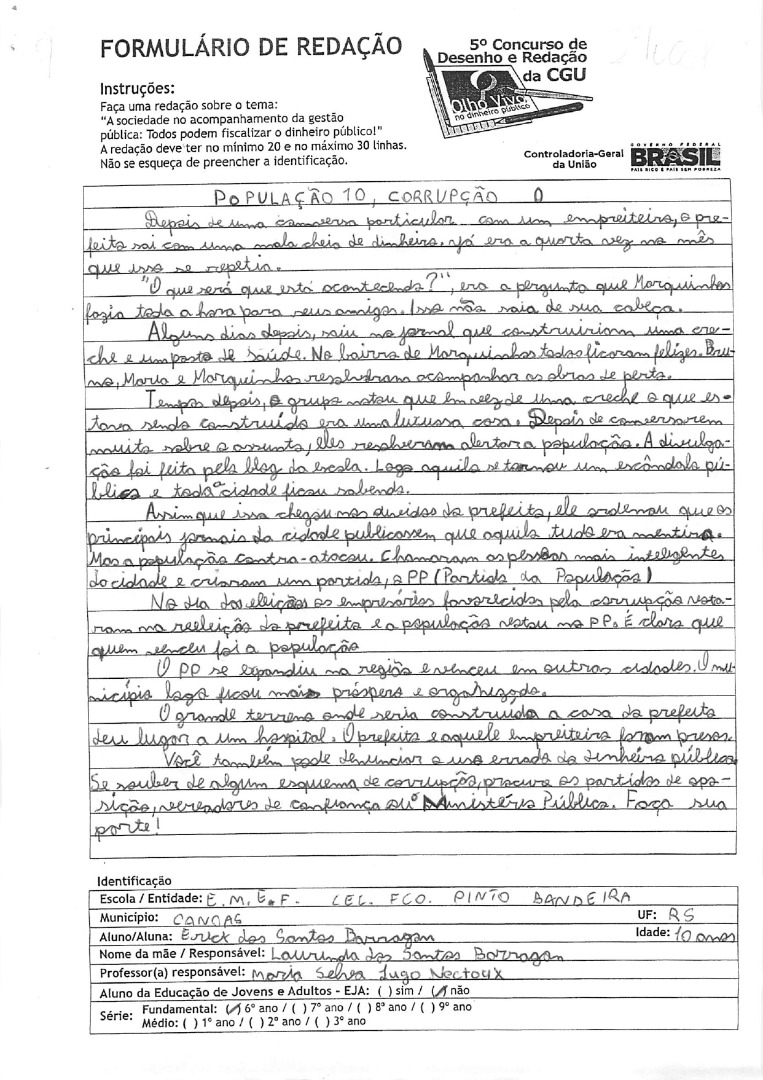 FORMULÁRIO DE REDAÇÃO
5º Concurso de
Desenho e Redação
da CGU
Olho Vivo
no dinheiro público
Instruções:
Faça uma redação sobre o tema:
"A sociedade no acompanhamento da gestão
pública: Todos podem fiscalizar o dinheiro público!"
A redação deve ter no mínimo 20 e no máximo 30 linhas.
Não se esqueça de preencher a identificação.
Controladoria-Geral
da União
GOVERNO FEDERAL
BRASIL
PAÍS RICO É PAÍS SEM POBREZA
POPULAÇÃO 10, CORRUPÇÃO 0
Depois de uma conversa particular com um empreiteiro, o pre-
feito sai com uma mala cheia de dinheiro. Já era a quarta vez no mês
que isso se repetia.
"O que será que está acontecendo?", era a pergunta que Marquinhos
fazia toda a hora para seus amigos. Isso não saia de sua cabeça.
Alguns dias depois, saiu no jornal que construiriam uma cre-
che e um posto de saúde. No bairro de Marquinhos todos ficaram felizes. Bru-
no, Maria e Marquinhos resolveram acompanhar as obras de perto.
Tempo depois, o grupo notou que em vez de uma creche o que es-
tava sendo construído era uma luxuosa casa. Depois de conversarem
muito sobre o assunto, eles resolveram alertar a população. A divulga-
ção foi feita pelo blog da escola. Logo aquilo se tornou um escândalo pú-
blico e toda a cidade ficou sabendo.
Assim que isso chegou nos ouvidos do prefeito, ele ordenou que os
principais jornais da cidade publicassem que aquilo tudo era mentira.
Mas a população contra-atacou. Chamaram as pessoas mais inteligentes
da cidade e criaram um partido, o PP (Partido da População)
No dia das eleições os empresários favorecidos pela corrupção vota-
ram na reeleição do prefeito e a população votou no PP. É claro que
quem venceu foi a população
O PP se expandiu na região e venceu em outras cidades. O mu-
nicípio logo ficou mais próspero e organizado.
O grande terreno onde seria construída a casa do prefeito
deu lugar a um hospital. O prefeito e aquele empreiteiro foram presos.
Você também pode denunciar o uso errado do dinheiro público.
Se souber de algum esquema de corrupção, procure os partidos de opo-
sição, vereadores de confiança ou o Ministério Público. Faça sua
parte!
Identificação
Escola / Entidade: E.M.E.F. CEL. FCO. PINTO BANDEIRA
Município: CANOAS UF: RS
Aluno/Aluna: Erick dos Santos Barragan Idade: 10 anos
Nome da mãe / Responsável: Laurinda dos Santos Barragan
Professor(a) responsável: Maria Selva Lugo Nectoux
Aluno da Educação de Jovens e Adultos - EJA: ( ) sim / (/) não
Série: Fundamental: (/) 6º ano / ( ) 7º ano / ( ) 8º ano / ( ) 9º ano
Médio: ( ) 1º ano / ( ) 2º ano / ( ) 3º ano